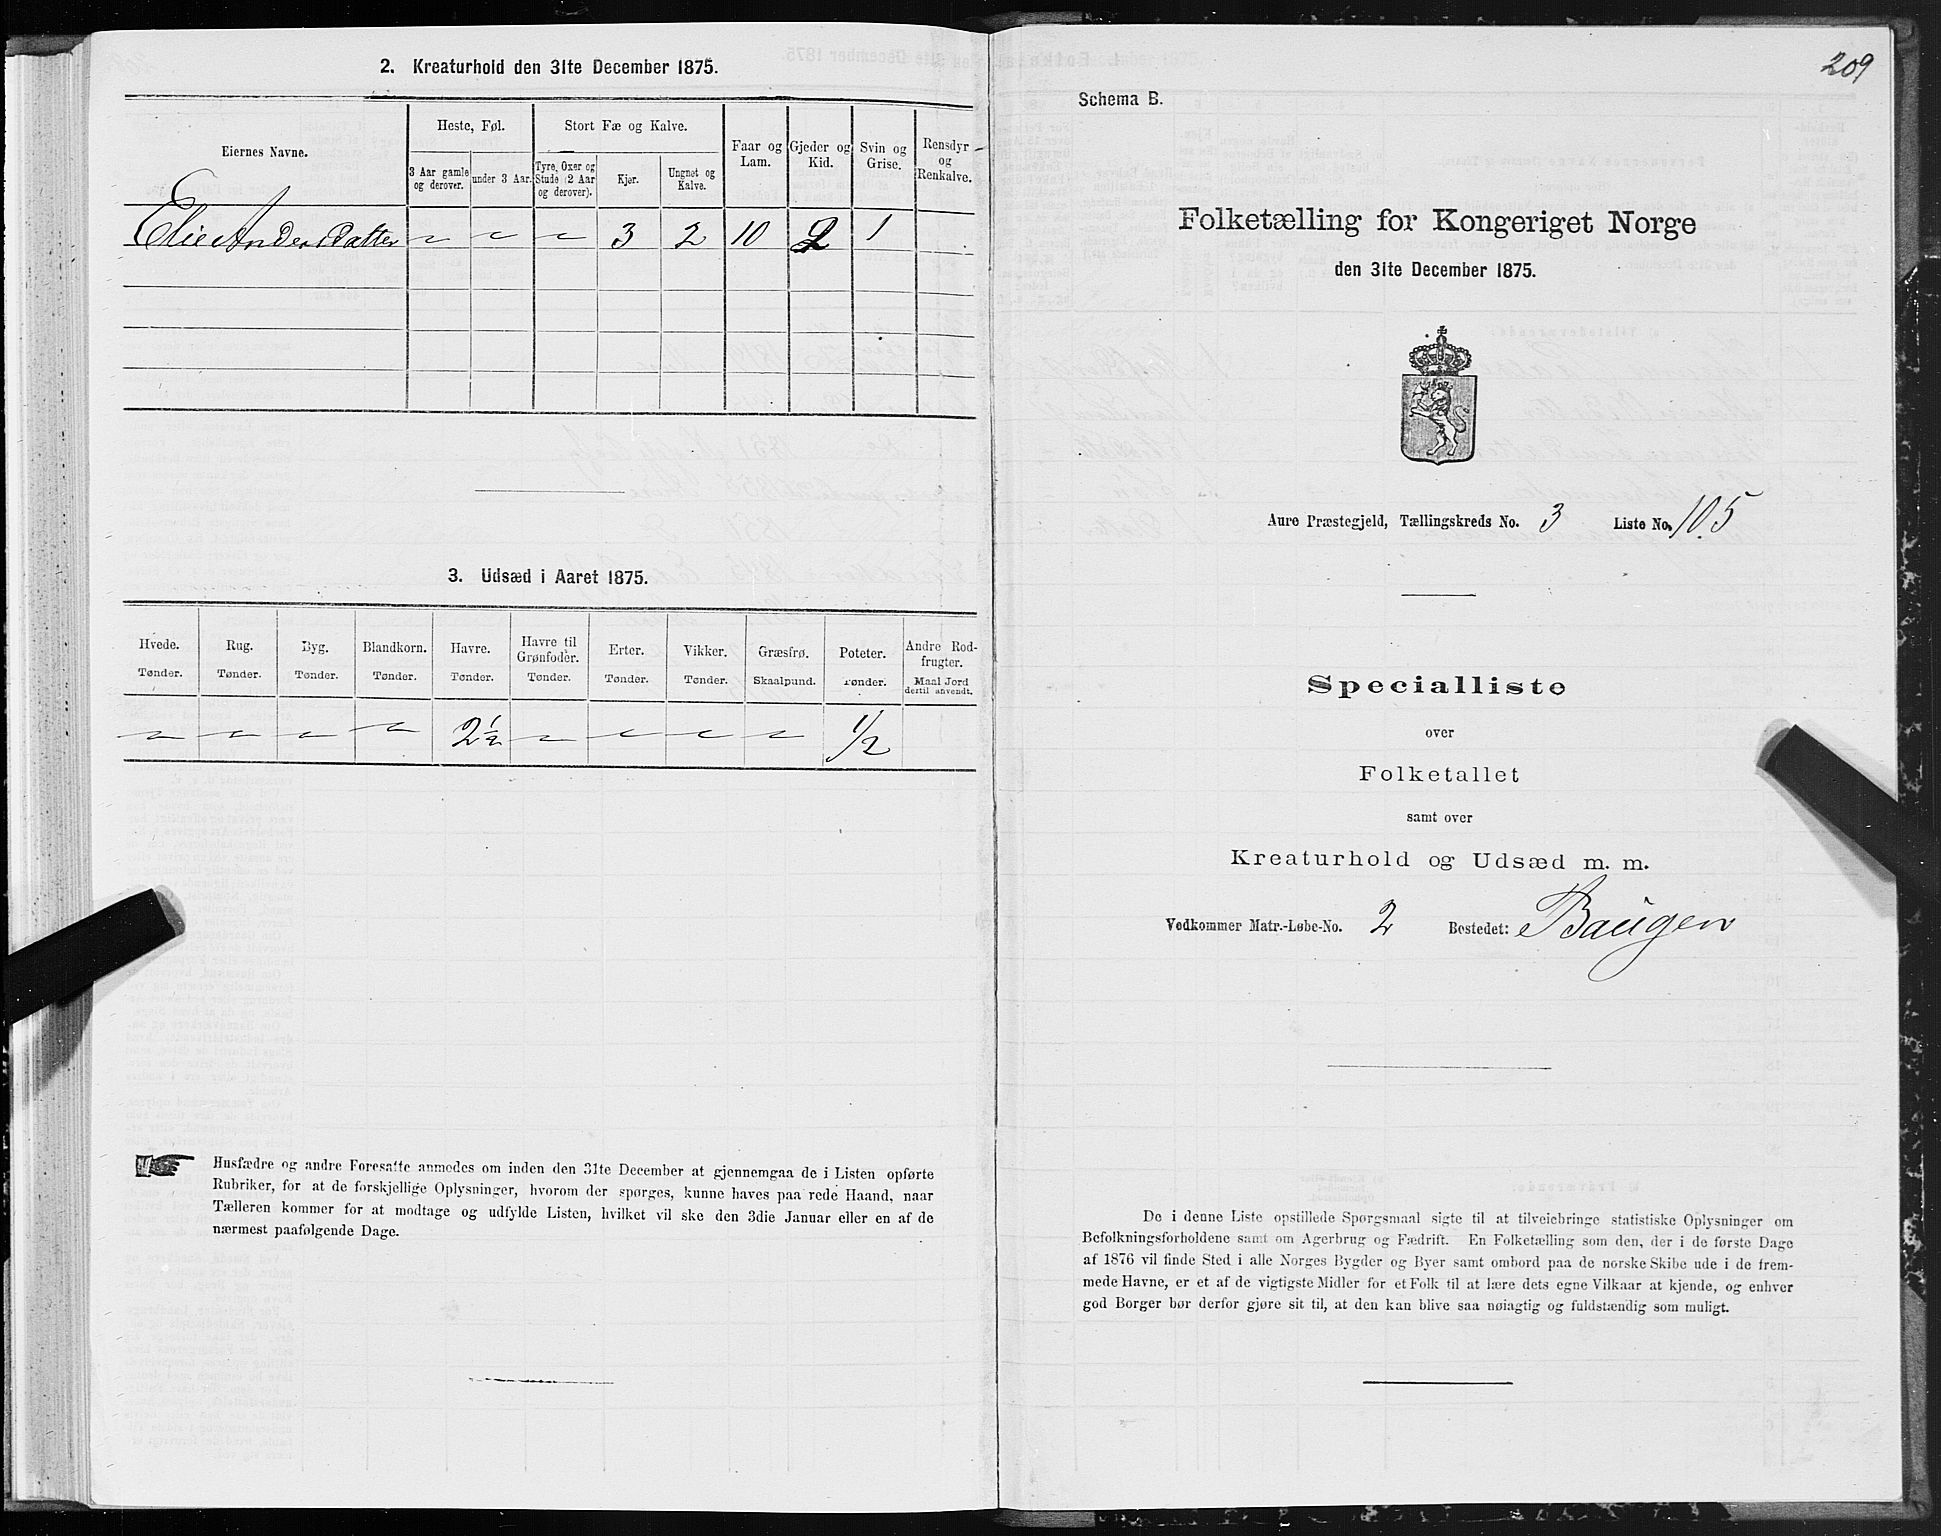 2. Kreaturhold den 31te December 1875.
Eiernes Navne.
Heste, Føl.
3 Aar gamle og derover.
under 3 Aar.
Stort Fæ og Kalve.
Tyre, Oxer og Stude (2 Aar og derover).
Kjør.
Ungnet og Kalve.
Faar og Lam.
Gjeder og Kid.
Svin og Grise.
Rensdyr og Renkalve.
Elie Andersdatter 3 2 10 2 1
3. Udsæd i Aaret 1875.
Hvede. Rug. Byg. Blandkorn. Havre. Havre til Grønfoder. Erter. Vikker. Græsfrø. Poteter. Andre Rodfrugter.
Tønder. Tønder. Tønder. Tønder. Tønder. Tønder. Tønder. Tønder. Skaalpund. Tønder. Maal Jord dertil anvendt.
2 1/2 1/2
Husfædre og andre Foresatte anmodes om inden den 31te December at gjennemgaa de i Listen opførte
Rubriker, for at de forskjellige Oplysninger, hvorom der spørges, kunne haves paa rede Haand, naar
Tælleren kommer for at modtage og udfylde Listen, hvilket vil ske den 3die Januar eller en af de
nærmest paafølgende Dage.
209
Schema B.
Folketælling for Kongeriget Norge
den 31te December 1875.
Aure Præstegjeld, Tællingskreds No. 3 Liste No. 105
Specialliste
over
Folketallet
samt over
Kreaturhold og Udsæd m. m.
Vedkommer Matr.-Løbe-No. 2 Bostedet: Baugen
De i denne Liste opstillede Spørgsmaal sigte til at tilveiebringe statistiske Oplysninger om
Befolkningsforholdene samt om Agerbrug og Fædrift. En Folketælling som den, der i de første Dage
af 1876 vil finde Sted i alle Norges Bygder og Byer samt ombord paa de norske Skibe ude i de frem-
mede Havne, er et af de vigtigste Midler for et Folk til at lære dets egne Vilkaar at kjende, og enhver
god Borger bør derfor gjøre sit til, at den kan blive saa nøiagtig og fuldstændig som muligt.